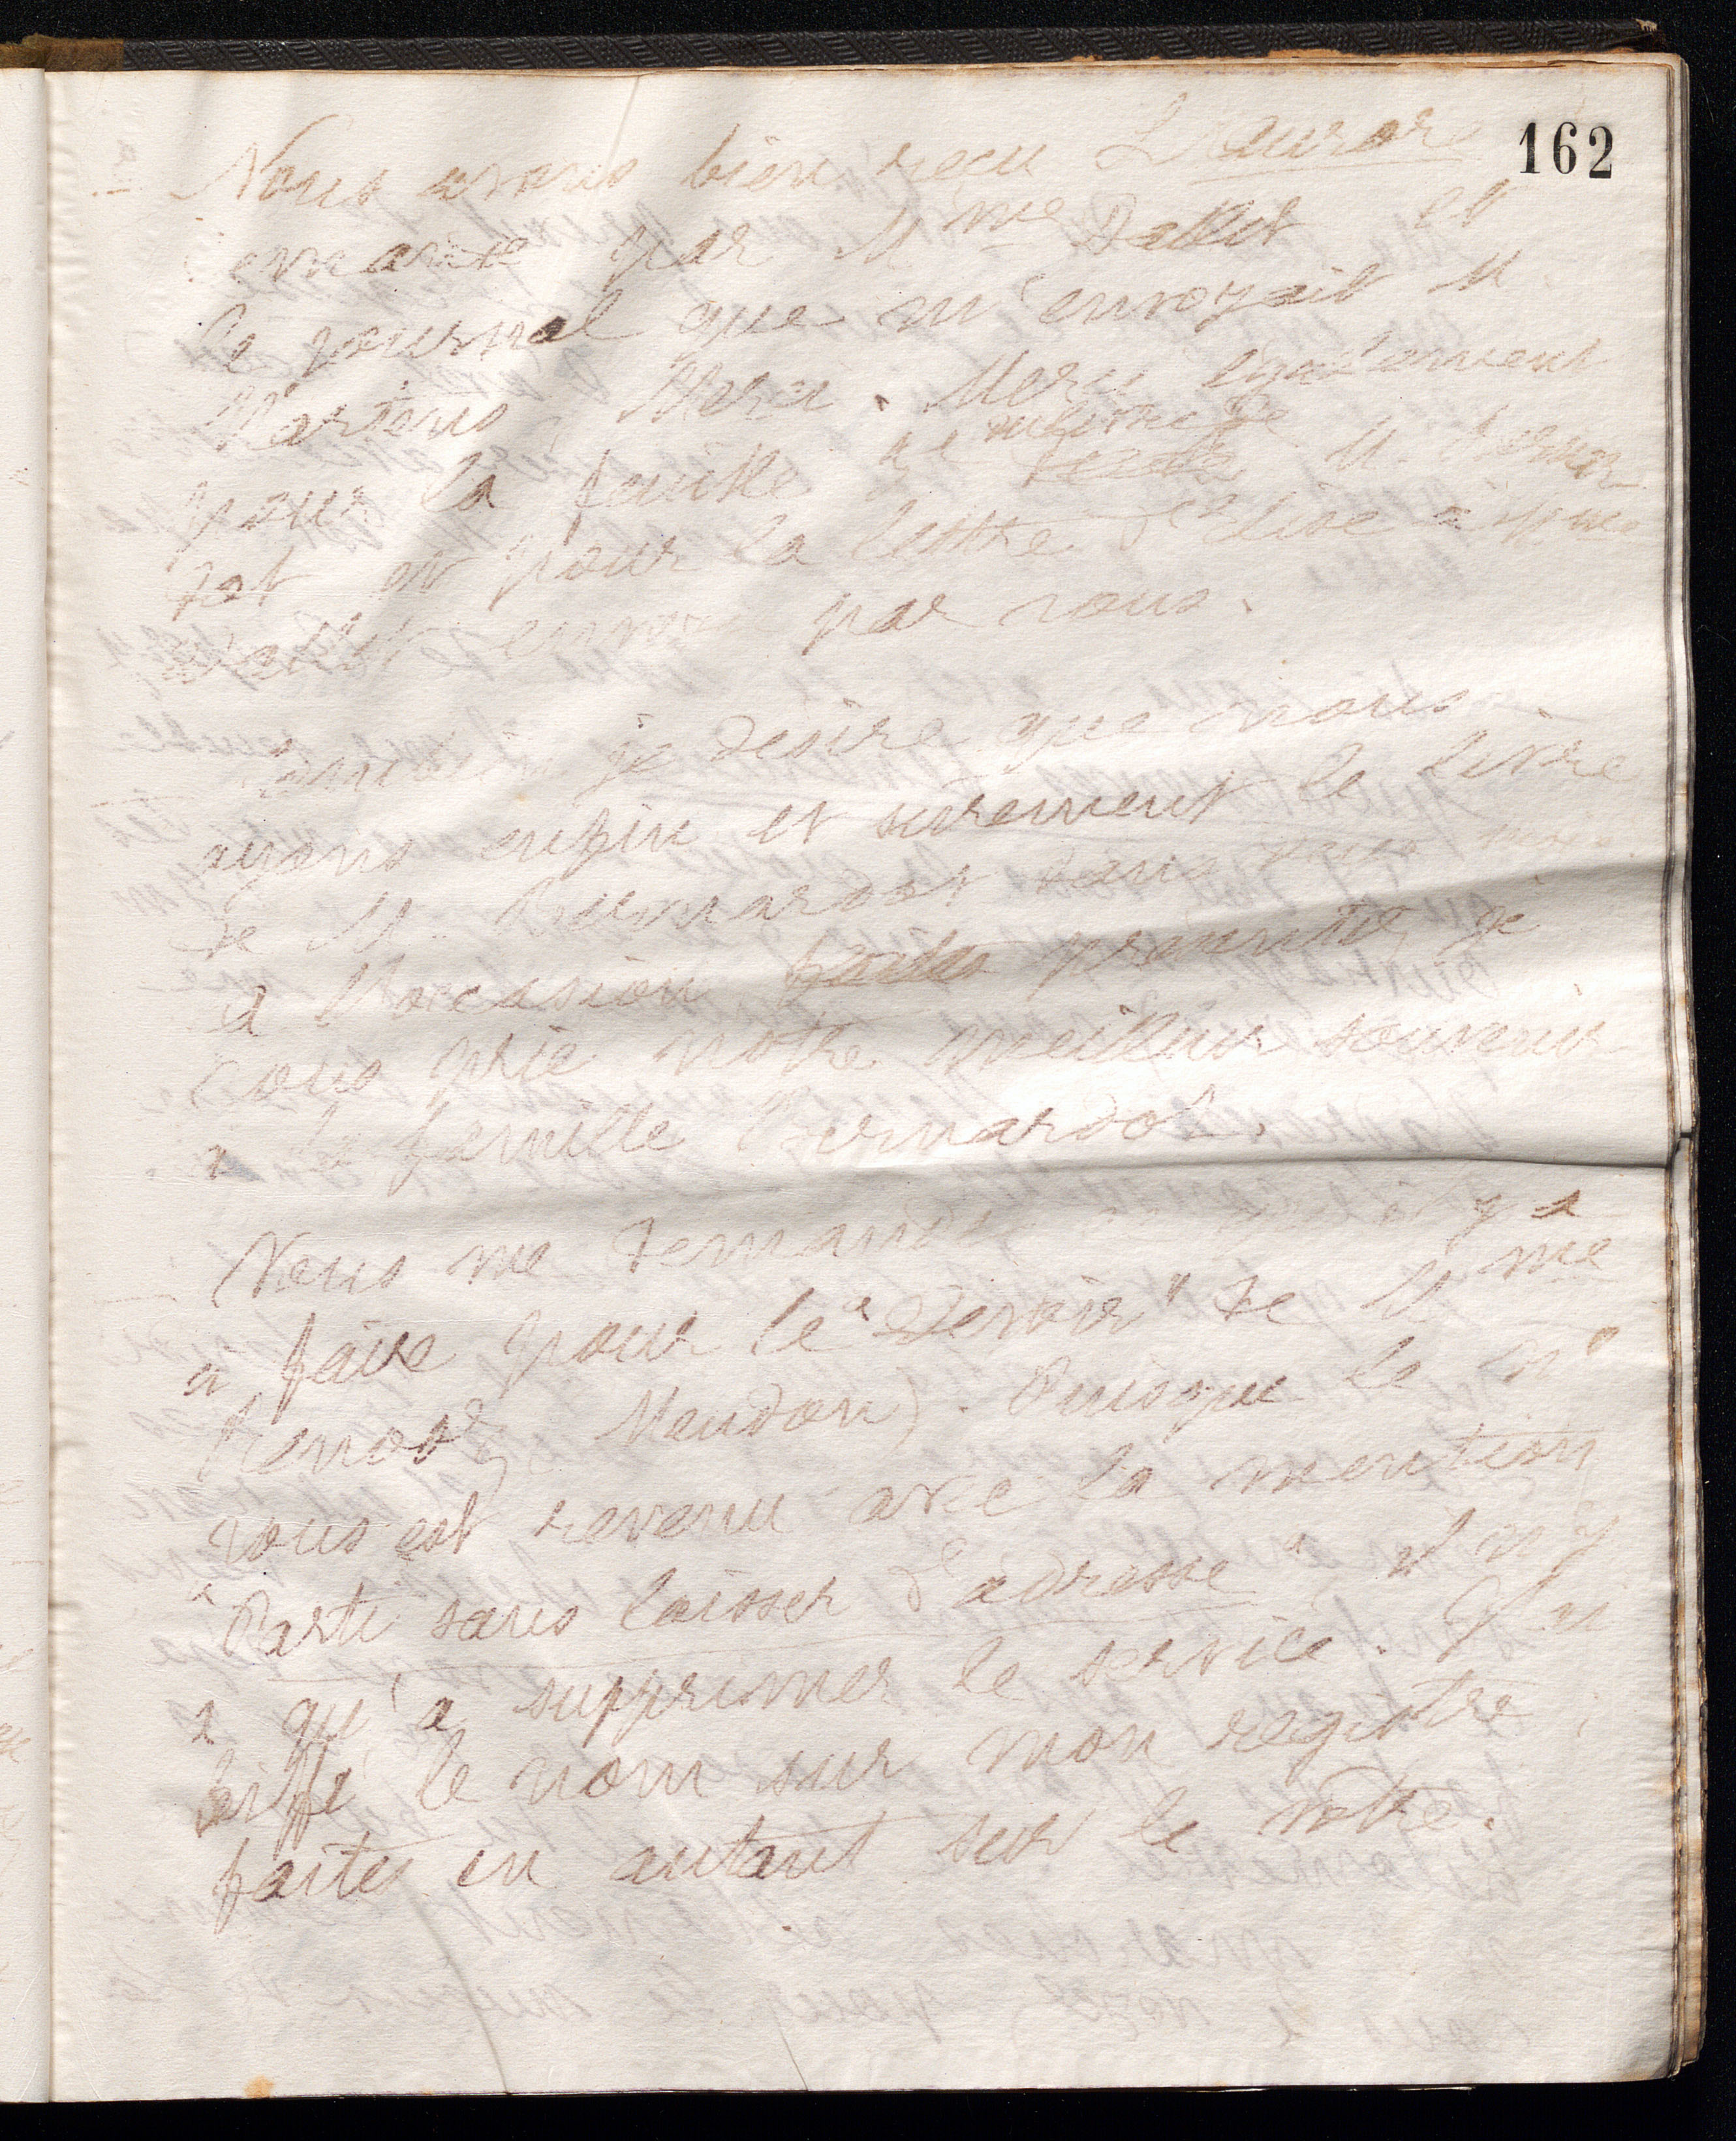 162
Nous avons bien reçu L'Aurore
envoyée par Mme Dallet et
le journal que m'envoyait M.
Martens. Merci. Merci également
pour la feuille au sujet de M.
et pour la lettre d'Elise à Mme
Dallet envoyée par vous.
Comme je désire que nous
ayons enfin et surement le livre
de M. Bernardot dans
à l'occasion faites présenter je
vous prie notre meilleur souvenir
à la famille Bernardot.
Vous me demandez ce qu'il y a
à faire pour le "Devoir" de Mme
Meudon). Puisque le no
vous est revenu avec la mention
"Parti sans laisser d'adresse" il n'y
a qu'à supprimer le service. J'ai
biffé le nom sur mon registre ;
faites en autant sur le vôtre.